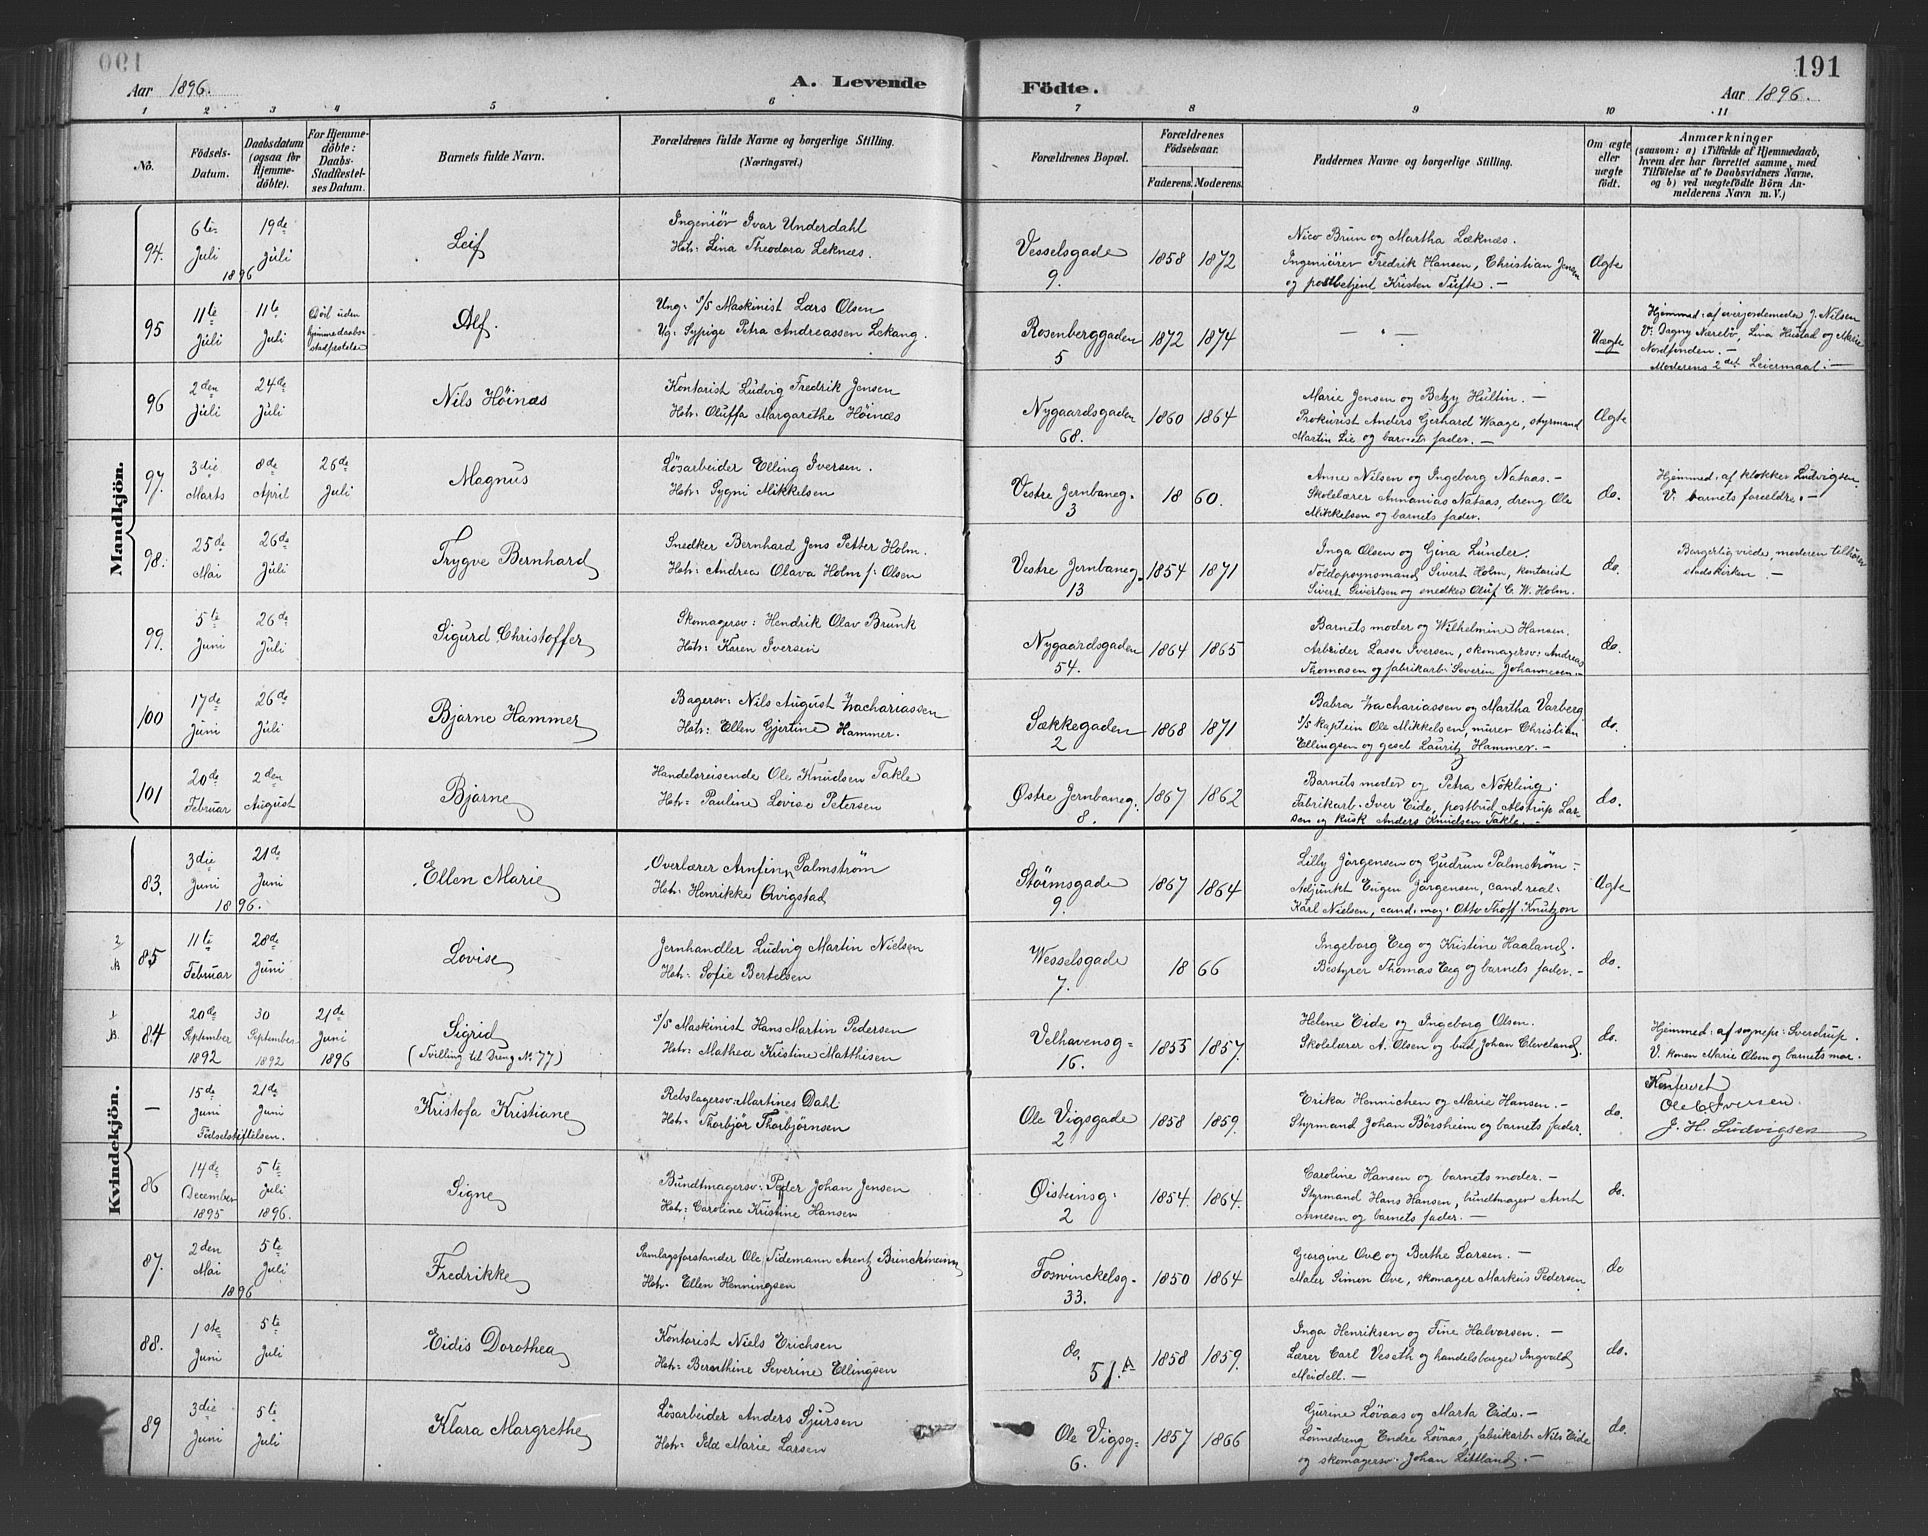 Aar 1896.
A. Levende Födte.
191
Aar 1896.
1 2 3 4 5 6 7 8 9 10 11
No.
Födsels-Datum.
Daabsdatum (ogsaa for Hjemmedöbte).
For Hjemmedöbte: Daabs-Stadfæstelses Datum.
Barnets fulde Navn.
Forældrenes fulde Navne og borgerlige Stilling. (Næringsvei.)
Forældrenes Bopæl.
Forældrenes Födselsaar.
Faderens. Moderens.
Faddernes Navne og borgerlige Stilling.
Om ægte eller uægte födt.
Anmærkninger
(saasom: a) i Tilfælde af Hjemmedaab, hvem der har forrettet samme, med Tilföielse af to Daabsvidners Navne, og b) ved uægtefödte Börn Anmelderens Navn m. V.)
Mandkjön.
94. 6te Juli 1896 19de Juli
Leif
Ingeniör Ivar Underdahl
Hstr: Lina Theodora Leknæs.
Vesselsgade 9.
1858 1872
Nico Brun og Martha Læknæs.
Ingeniörer Fredrik Hansen, Christian Jensen
og postbetjent Kristen Tufte. —
Ægte
95 11te Juli 11te Juli
Död uden hjemmedaabsstadfæstelse
Alf
Ung: s/s Maskinist Lars Olsen
Ug: Sypige Petra Andreassen Lekang.
Rosenberggaden 5
1872 1874
— " —
Uægte
Hjemmed: af overjordemoder J. Nilsen
V: Dagny Nærebö, Lina Hustad og Marie
Nordfinden. —
Moderens 2det Leiermaal. —
96 2den Juli 24de Juli
Nils Höinæs
Kontorist Ludvig Fredrik Jensen
Hstr: Oluffa Margarethe Höinæs
Nygaardsgaden 68.
1860 1864
Marie Jensen og Betzy Hultin. —
Prokurist Anders Gerhard Waage, styrmand
Martin Lie og barnets fader. —
Ægte
97. 3die Marts 8de April 26de Juli
Magnus
Lösarbeider Elling Iversen.
Hstr: Sygni Mikkelsen
Vestre Jernbaneg. 3
1860.
Anne Nilsen og Ingeborg Nataas. —
Skolelærer Annanias Nataas, dreng Ole
Mikkelsen og barnets fader.
do.
Hjemmed: af klokker Ludvigsen.
V: barnets forældre. —
98. 25de Mai 26de Juli
Trygve Bernhard
Snedker Bernhard Jens Petter Holm.
Hstr: Andrea Olava Holm f: Olsen
Vestre Jernbaneg. 13
1854 1871
Inga Olsen og Gina Lunder.
Toldopsynsmand Sivert Holm, kontorist
Sivert Sivertsen og snedker Oluf C. W. Holm.
do.
Borgerlig viede, moderen tilhører
statskirken. —
99. 5te Juni 26de Juli
Sigurd Christoffer
Skomagersv: Hendrik Olav Brunk
Hstr: Karen Iversen
Nygaardsgaden 54.
1864 1865
Barnets moder og Wilhelmine Hansen.
Arbeider Lasse Iversen, skomagersv: Andreas
Thomasen og fabrikarb: Severin Johannesen. —
do.
100 17de Juni 26de Juli
Bjarne Hammer
Bagersv: Nils August Zachariassen
Hstr: Ellen Gjertine Hammer.
Sækkegaden 2
1868 1871
Babra Zachariassen og Martha Varberg
s/s kaptein Ole Mikkelsen, murer Christian
Ellingsen og gesel Lauritz Hammer. —
do.
101 20de Februar 2den August
Bjarne
Handelsreisende Ole Knudsen Takle
Hstr: Pauline Lovise Petersen
Østre Jernbaneg. 8.
1867 1862
Barnets moder og Petra Nökling.
Fabrikarb: Iver Eide, postbud Alstrup Larsen og kusk Anders Knudsen Takle. —
do.
Kvindekjön.
83. 3die Juni 1896. 21de Juni
Ellen Marie
Overlærer Arnfinn Palmström
Hstr: Henrikke Qvigstad
Störmsgade 9.
1867 1864
Lilly Jörgensen og Gudrun Palmström —
Adjunkt Eugen Jörgensen, cand real:
Karl Nielsen, cand. mag: Otto Thoff Knutzon
Ægte
85 11te Februar 28de Juni
Lovise
Jernhandler Ludvig Martin Nielsen
Hstr: Sofie Bertelsen
Wesselsgade 7.
1866
Ingeborg Eeg og Kristine Haaland.
Bestyrer Thomas Eeg og barnets fader. —
do.
84 20de September 1892 30 September 1892 21de Juni 1896
Sigrid
(Tvilling til Dreng No. 77)
s/s Maskinist Hans Martin Pedersen
Hstr: Mathea Kristine Matthisen
Velhavensg. 16.
1855 1857.
Helene Eide og Ingeborg Olsen.
Skolelærer A. Olsen og bud Johan Cleveland.
do.
Hjemmed: af sognepr: Sverdrup.
V. konen Marie Olsen og barnets mor.
— 15de Juni 21de Juni
Födselstiftelsen.
Kristofa Kristiane
Rebslagersv: Martines Dahl
Hstr: Thorbjör Thorbjörnsen
Ole Vigsgade 2
1858 1859.
Erika Hennichen og Marie Hansen. —
Styrmand Johan Börsheim og barnets fader.
do.
Konfereret
Ole C Iversen.
J. H. Ludvigsen
86 14de December 1895 5te Juli 1896.
Signe
Bundtmagersv: Peder Johan Jensen
Hstr: Caroline Kristine Hansen
Øisteinsg. 2
1854. 1864.
Caroline Hansen og barnets moder. —
Styrmand Hans Hansen, bundtmager Arnt
Arnesen og barnets fader. —
do.
87. 2den Mai 1896 5te Juli
Fredrikke
Samlagsforstander Ole Tidemann Arentz Brinckmann
Hstr: Ellen Henningsen
Fosvinckelsg. 33.
1850 1864
Georgine Ove og Berthe Larsen. —
Maler Simon Ove, skomager Markus Pedersen
do
88. 1ste Juni 5te Juli
Eidis Dorothea
Kontorist Niels Erichsen
Hstr: Berathine Severine Ellingsen
do. 51.A
1858 1859.
Inga Henriksen og Tine Halvorsen. —
Lærer Carl Veseth og handelsborger Ingvald
Meidell. —
do.
89 3die Juni 5te Juli
Klara Margrethe
Lösarbeider Anders Sjursen
Hstr: Ida Marie Larsen
Ole Vigsg. 6.
1857 1866
Gurine Lövaas og Marta Eide. —
Lönnedreng Endre Lövaas, fabrikarb: Nils Eide
og skomagersv. Johan Littland. —
do.